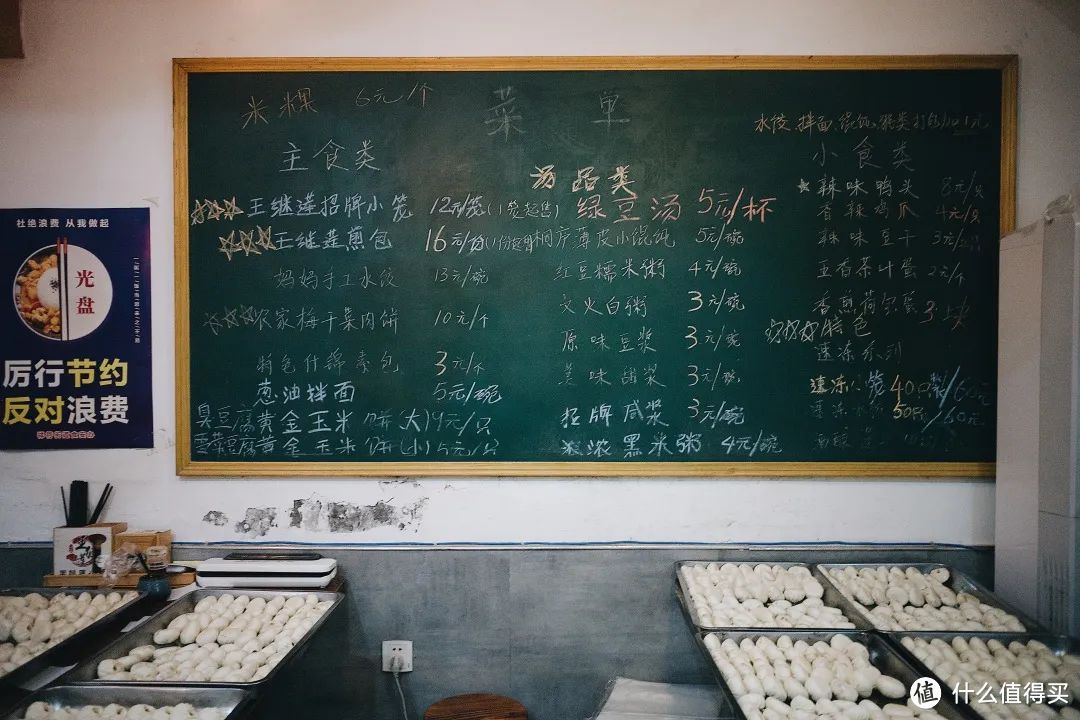 杜绝浪费 从我做起
光盘
厉行节约
反对浪费
菜单
米粿 6元/个
主食类
☆☆☆王继莲招牌小笼 12元/笼(1笼起售)
☆☆☆王继莲煎包 16元/份(1份起售)
妈妈手工水饺 13元/碗
☆☆☆农家梅干菜肉饼 10元/个
特色什锦素包 3元/个
葱油拌面 5元/碗
臭豆腐黄金玉米饼(大)9元/只
雪菜豆腐黄金玉米饼(小)5元/只
汤品类
绿豆汤 5元/杯
桐庐薄皮小馄饨 5元/碗
红豆糯米粥 4元/碗
文火白粥 3元/碗
原味豆浆 3元/碗
美味甜浆 3元/碗
招牌咸浆 3元/碗
米浓黑米粥 4元/碗
水饺、拌面、馄饨、粥类打包加1元
小食类
☆辣味鸭头 8元/只
香辣鸡爪 4元/只
辣味豆干 3元/
五香茶叶蛋 2元/个
香煎荷包蛋 3元/
特色
速冻系列
速冻小笼 40只/60元
速冻水饺 50只/60元
值 什么值得买